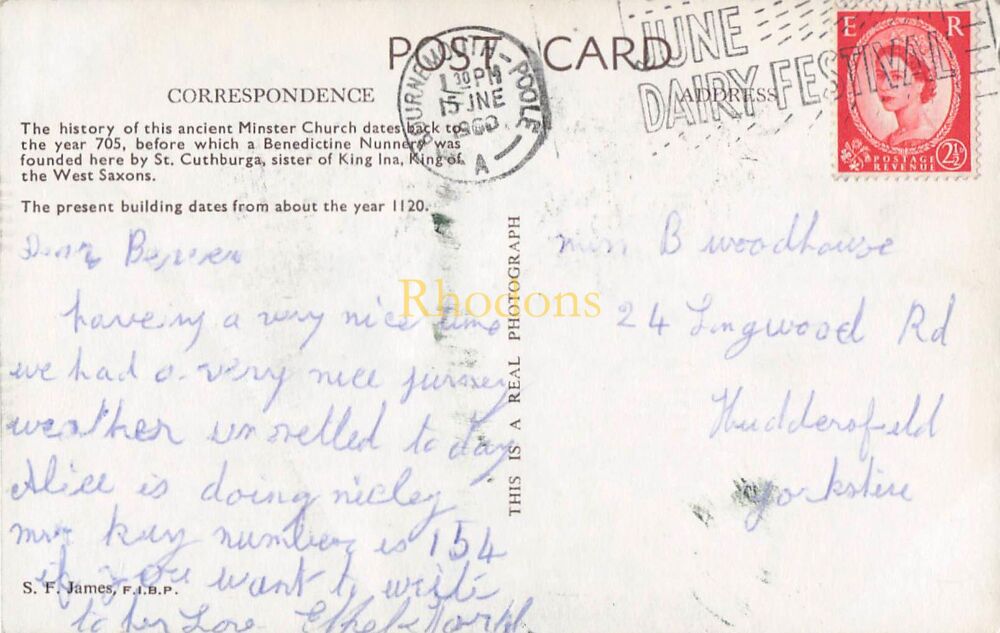 POST CARD
CORRESPONDENCE
ADDRESS
The history of this ancient Minster Church dates back to
the year 705, before which a Benedictine Nunnery was
founded here by St. Cuthburga, sister of King Ina, King of
the West Saxons.
The present building dates from about the year 1120.
BOURNEMOUTH-POOLE
1 30PM
15 JNE
1960
A
JUNE
DAIRY FESTIVAL
E R
POSTAGE
REVENUE
2½
Dear
having a very nice time
we had a very nice jurney
weather unsettled to day
Alice is doing nicley
mrs Kay number is 154
if you want to write
to her Love Ethel
S. F. James, F.I.B.P.
THIS IS A REAL PHOTOGRAPH
miss B woodhouse
24 Lingwood Rd
Huddersfield
yorkshire
Rhodons